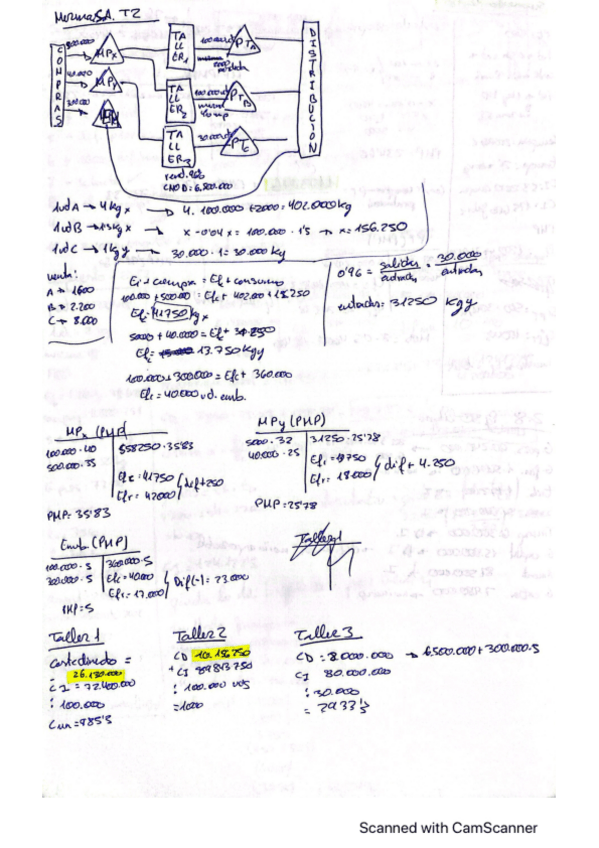 Mermas S.A. T2
COMPRAS
500.000
MPx
40.000
MPy
300.000
TALLER1
100.000ud
PTA
TALLER2
100.000ud
PTB
TALLER3
30.000ud
PTC
DISTRIBUCION
rend. 96%
CMOD = 6.500.000
1udA → 4kg x → 4. 100.000 + 2000 = 402.000kg
1udB → 1'5kg x → x - 0'04x = 100.000 · 1'5 → x = 156.250
1udC → 1kg y → 30.000 · 1 = 30.000 kg
venta:
A → 1600
B → 2.200
C → 8.000
Ei + compra = Ef + consumo
100.000 + 500.000 = Ef + 402.000 + 156.250
Ef = 41750 kgx
5000 + 40.000 = Ef + 31250
Ef = 13.750 kgy
100.000 + 300.000 = Efc + 360.000
Efc = 40.000 ud. emb.
0'96 = salidas/entradas = 30.000/entradas
entradas = 31250 kg y
MPx (PMP)
100.000 · 40
500.000 · 35
558250 · 35'83
Efc = 41750
Efr = 42000
dif + 250
PMP = 35'83
MPy (PMP)
5000 · 32
40.000 · 25
31250 · 25'78
Efc = 13750
Efr = 18.000
dif + 4.250
PMP = 25'78
Emb (PMP)
100.000 · 5
300.000 · 5
360.000 · 5
Efc = 40.000
Efr = 17.000
Dif (-) = 23.000
PMP = 5
Taller 1
Taller 1
Coste directo =
26.130.000
CI = 72.400.000
: 100.000
Cun = 985'5
Taller 2
CD 10.156.750
+ CI 89843750
: 100.000 uds
= 1000
Taller 3
CD = 8.000.000 → 6.500.000 + 300.000 · 5
CI 80.000.000
: 30.000
= 2933'3
Scanned with CamScanner